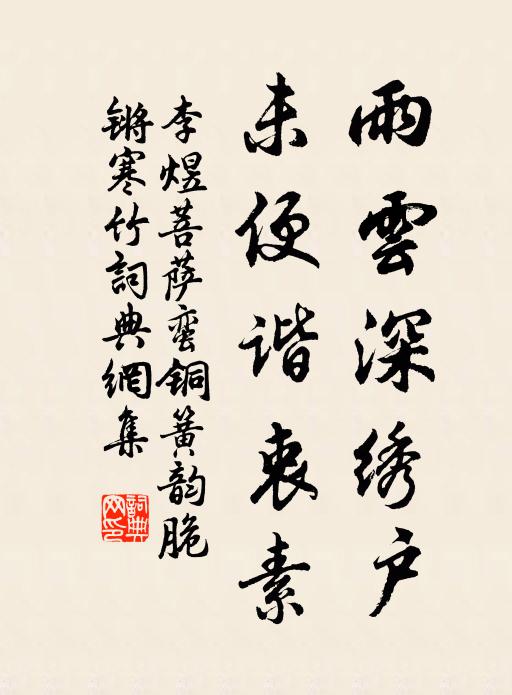 雨雲深绣户
未便谐衷素
李煜菩萨蛮铜簧韵脆
锵寒竹詞典網集
詞典
网印